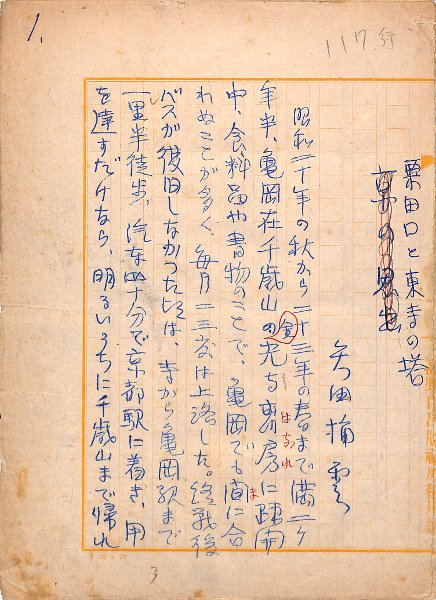 1.
117行
粟田口と東寺の塔
矢田挿雲
昭和二十年の秋から二十三年の春まで満二ケ
年半、亀岡在千歳山の金光寺房に疎開
はなれ
中、食料品や書物のことで、亀岡でも間に合
ま
わぬことが多く、毎月二三度は上洛した。終戦後
バスが復旧しなかつた頃は、寺から亀岡駅まで
一里半徒歩、汽車四十分で京都駅に着き、用
を達すだけなら、明るいうちに千歳山まで帰れ
3
20 x 20